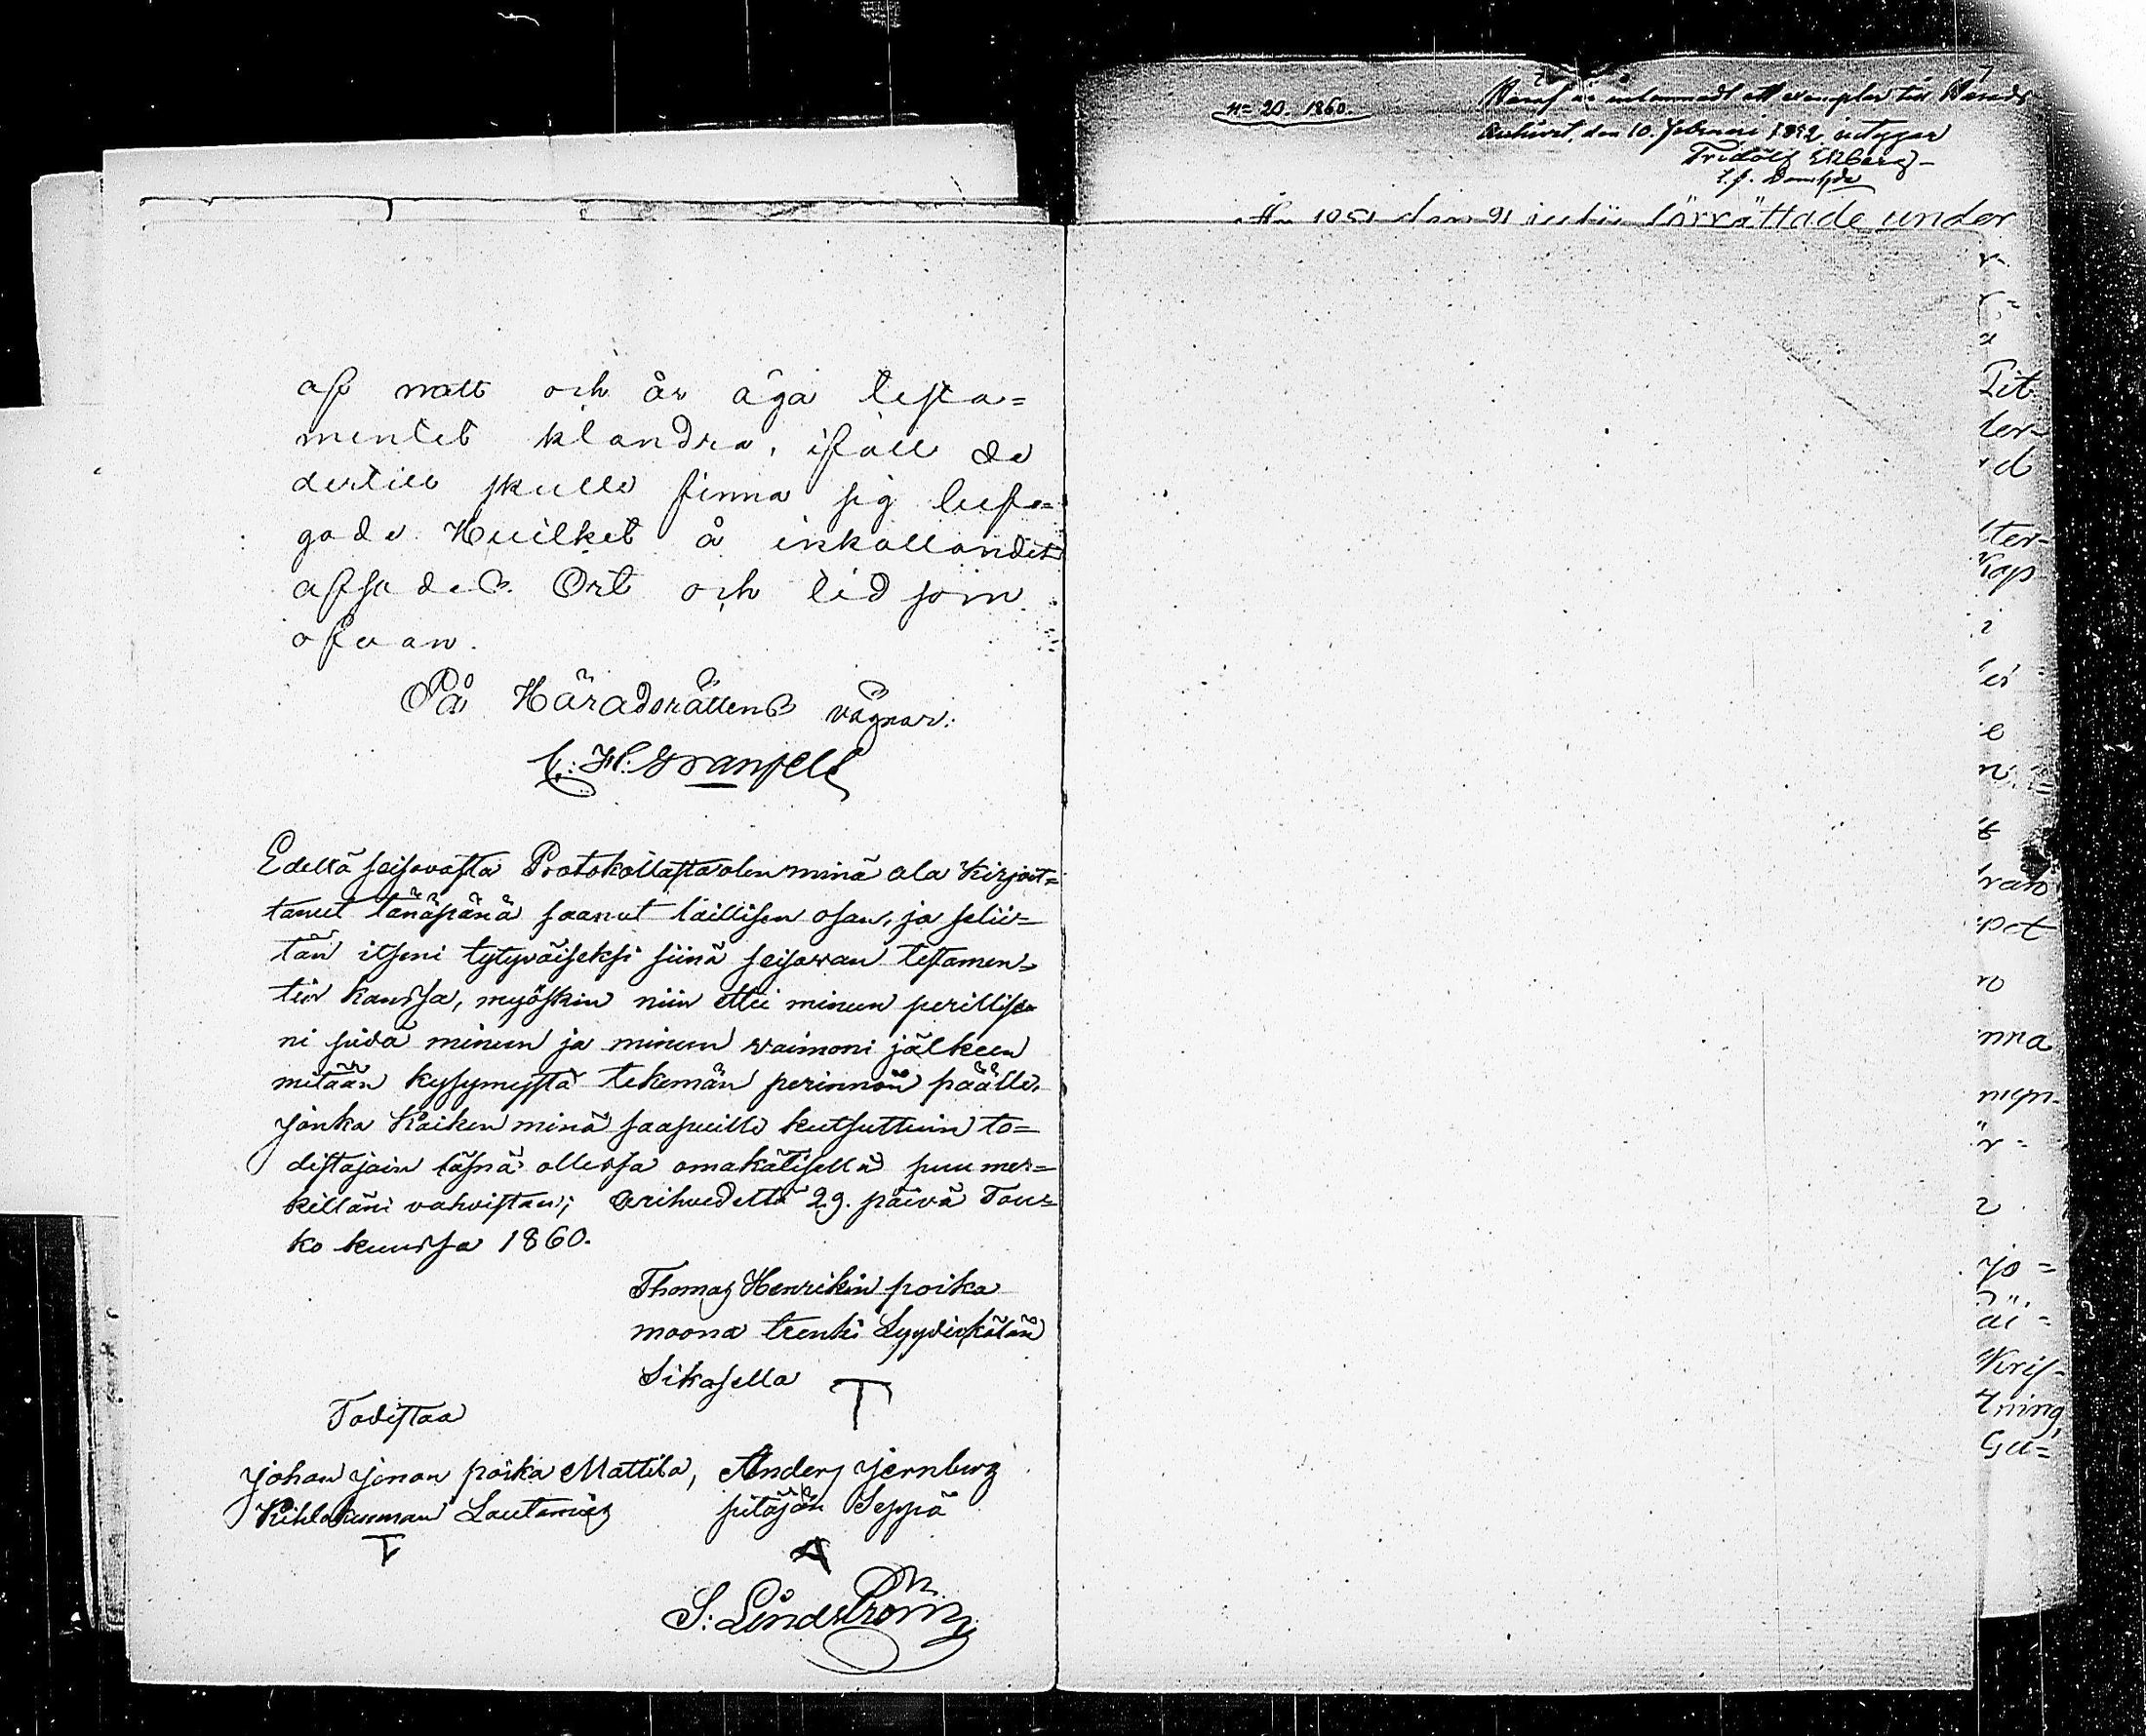 af natt och år äga testa=
mentet klandra, ifall de
dertill skulle finna sig befo=
gade. Hvilket å inkallandet
afsades. Ort och tid som
ofvan.
På Häradsrättens vägnar:
Edellä seisovasta Protokollasta olen minä ala Kirjoit=
tanut tänäpänä saanut laillisen osan, ja selit=
tän itseni tytyväiseksi siinä seisowan testamen=
tin kanssa, myöskin niin ettei minun perillise=
ni siidä minun ja minun vaimoni jälkeen
mitään kysymystä tekemän perinnön päälle.
Jonka Kaiken minä saapuille kutsuttuin to=
distajain läsnä ollessa omakätisellä puumer=
killäni vahvistan; Orihvedellä 29. päivä Tou=
ko kuussa 1860.
Thomas Henrikin poika
moona trenki Lyydickälän
Sikasella
T
Todistaa
Johan Jonan poika Mattila, Anders Jernberg
Kihlakunnan Lautamies pitäjän Seppä
S: Lindström
N= 20. 1860.
Häraf är inlemnadt ett exemplar till Härads
Arkivet, den 10. Februari 1892, intygar
Fridolf Ekberg
den 21 förrättade under
Tit
ter=
Kap
nna
Kris-
tning,